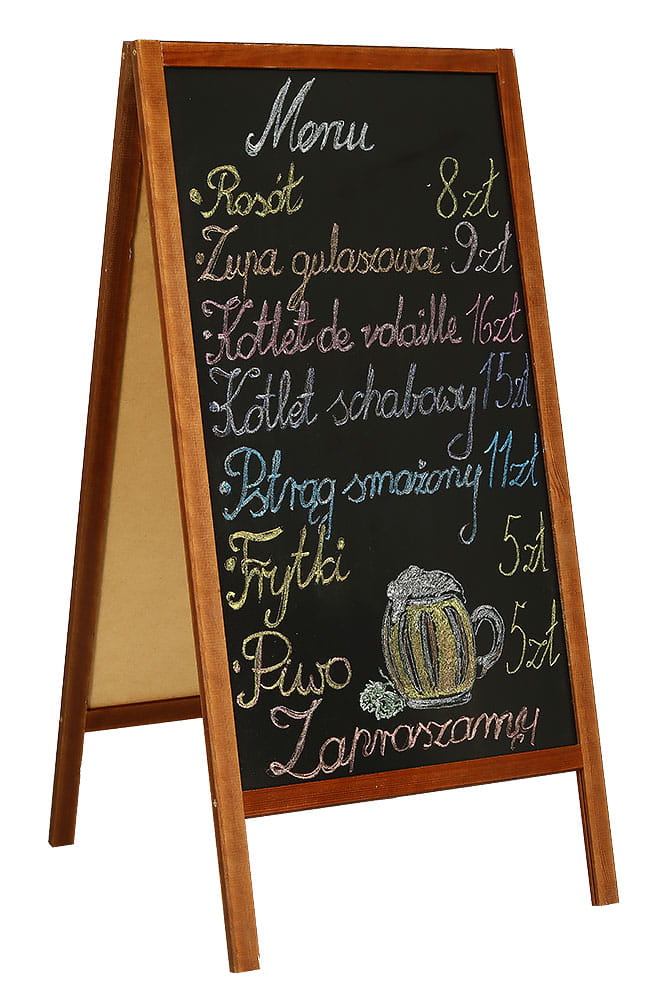 Menu
• Rosół 8zł
• Zupa gulaszowa 9zł
• Kotlet de volaille 16zł
• Kotlet schabowy 15zł
• Pstrąg smażony 11zł
• Frytki 5zł
• Piwo 5zł
Zapraszamy